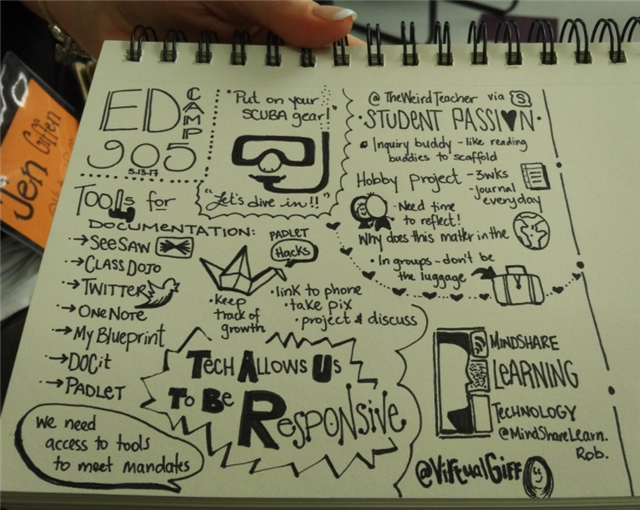 Jen Giffen
ED
CAMP
905
5.13.17
"Put on your
SCUBA gear!
"Let's dive in!!"
Tools for
DOCUMENTATION:
→SEESAW
→CLASS DOJO
→TWITTER
→ONENOTE
→My Blueprint
→DOCit
→PADLET
PADLET
Hacks
•keep
track of
growth
•link to phone
•take pix
•project & discuss
TECH ALLOWS US
TO BE RESPONSIVE
we need
access to tools
to meet mandates
@TheWeirdTeacher via S
•STUDENT PASSION•
Inquiry buddy - like reading
buddies to scaffold
Hobby Project -3wks
-journal
everyday
•Need time
to reflect!
Why does this matter in the
•In groups - don't be
the luggage
MINDSHARE
LEARNING
TECHNOLOGY
@MindShareLearn.
Rob.
@VirtualGiff